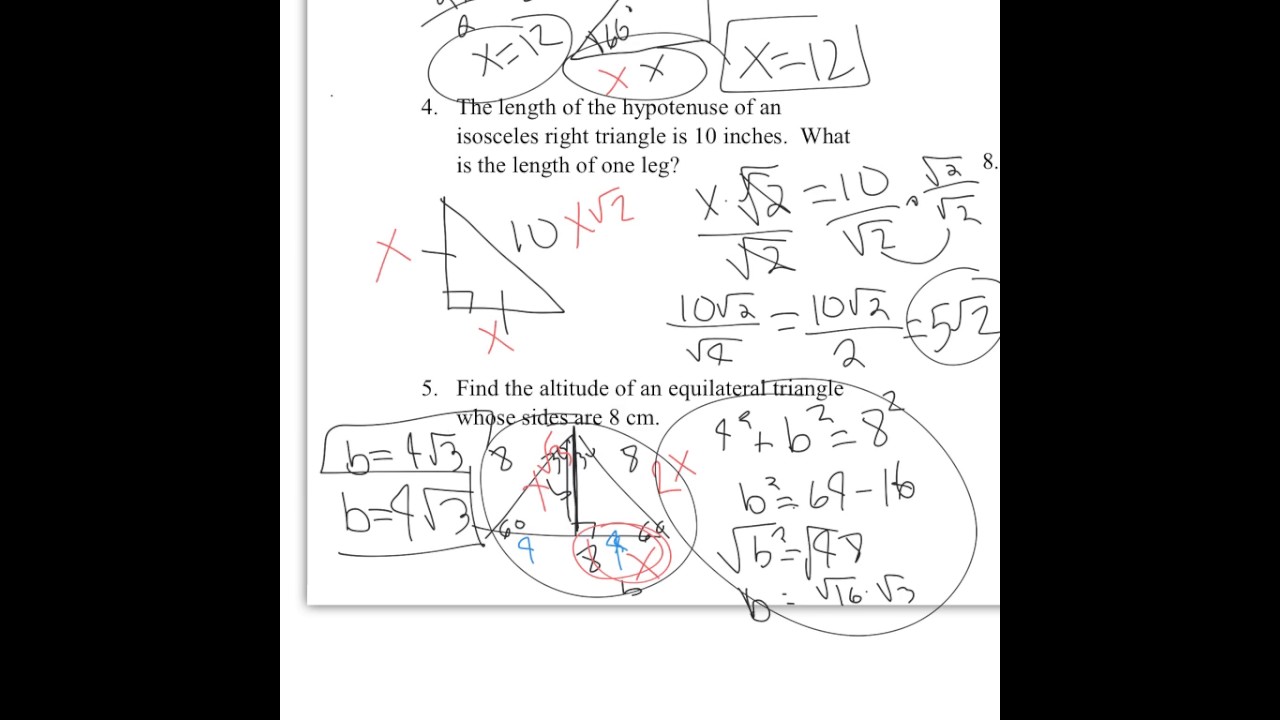 x=12
60°
x x
x=12
4. The length of the hypotenuse of an
isosceles right triangle is 10 inches. What
is the length of one leg?
8.
x
10 x√2
x
x·√2/√2 = 10/√2 · √2/√2
10√2/√4 = 10√2/2 = 5√2
5. Find the altitude of an equilateral triangle
whose sides are 8 cm.
b=4√3
b=4√3
8 8
2x
60 60
4 8 4 x
b
4²+b²=8²
b²=64-16
√b²=√48
b=√16·√3